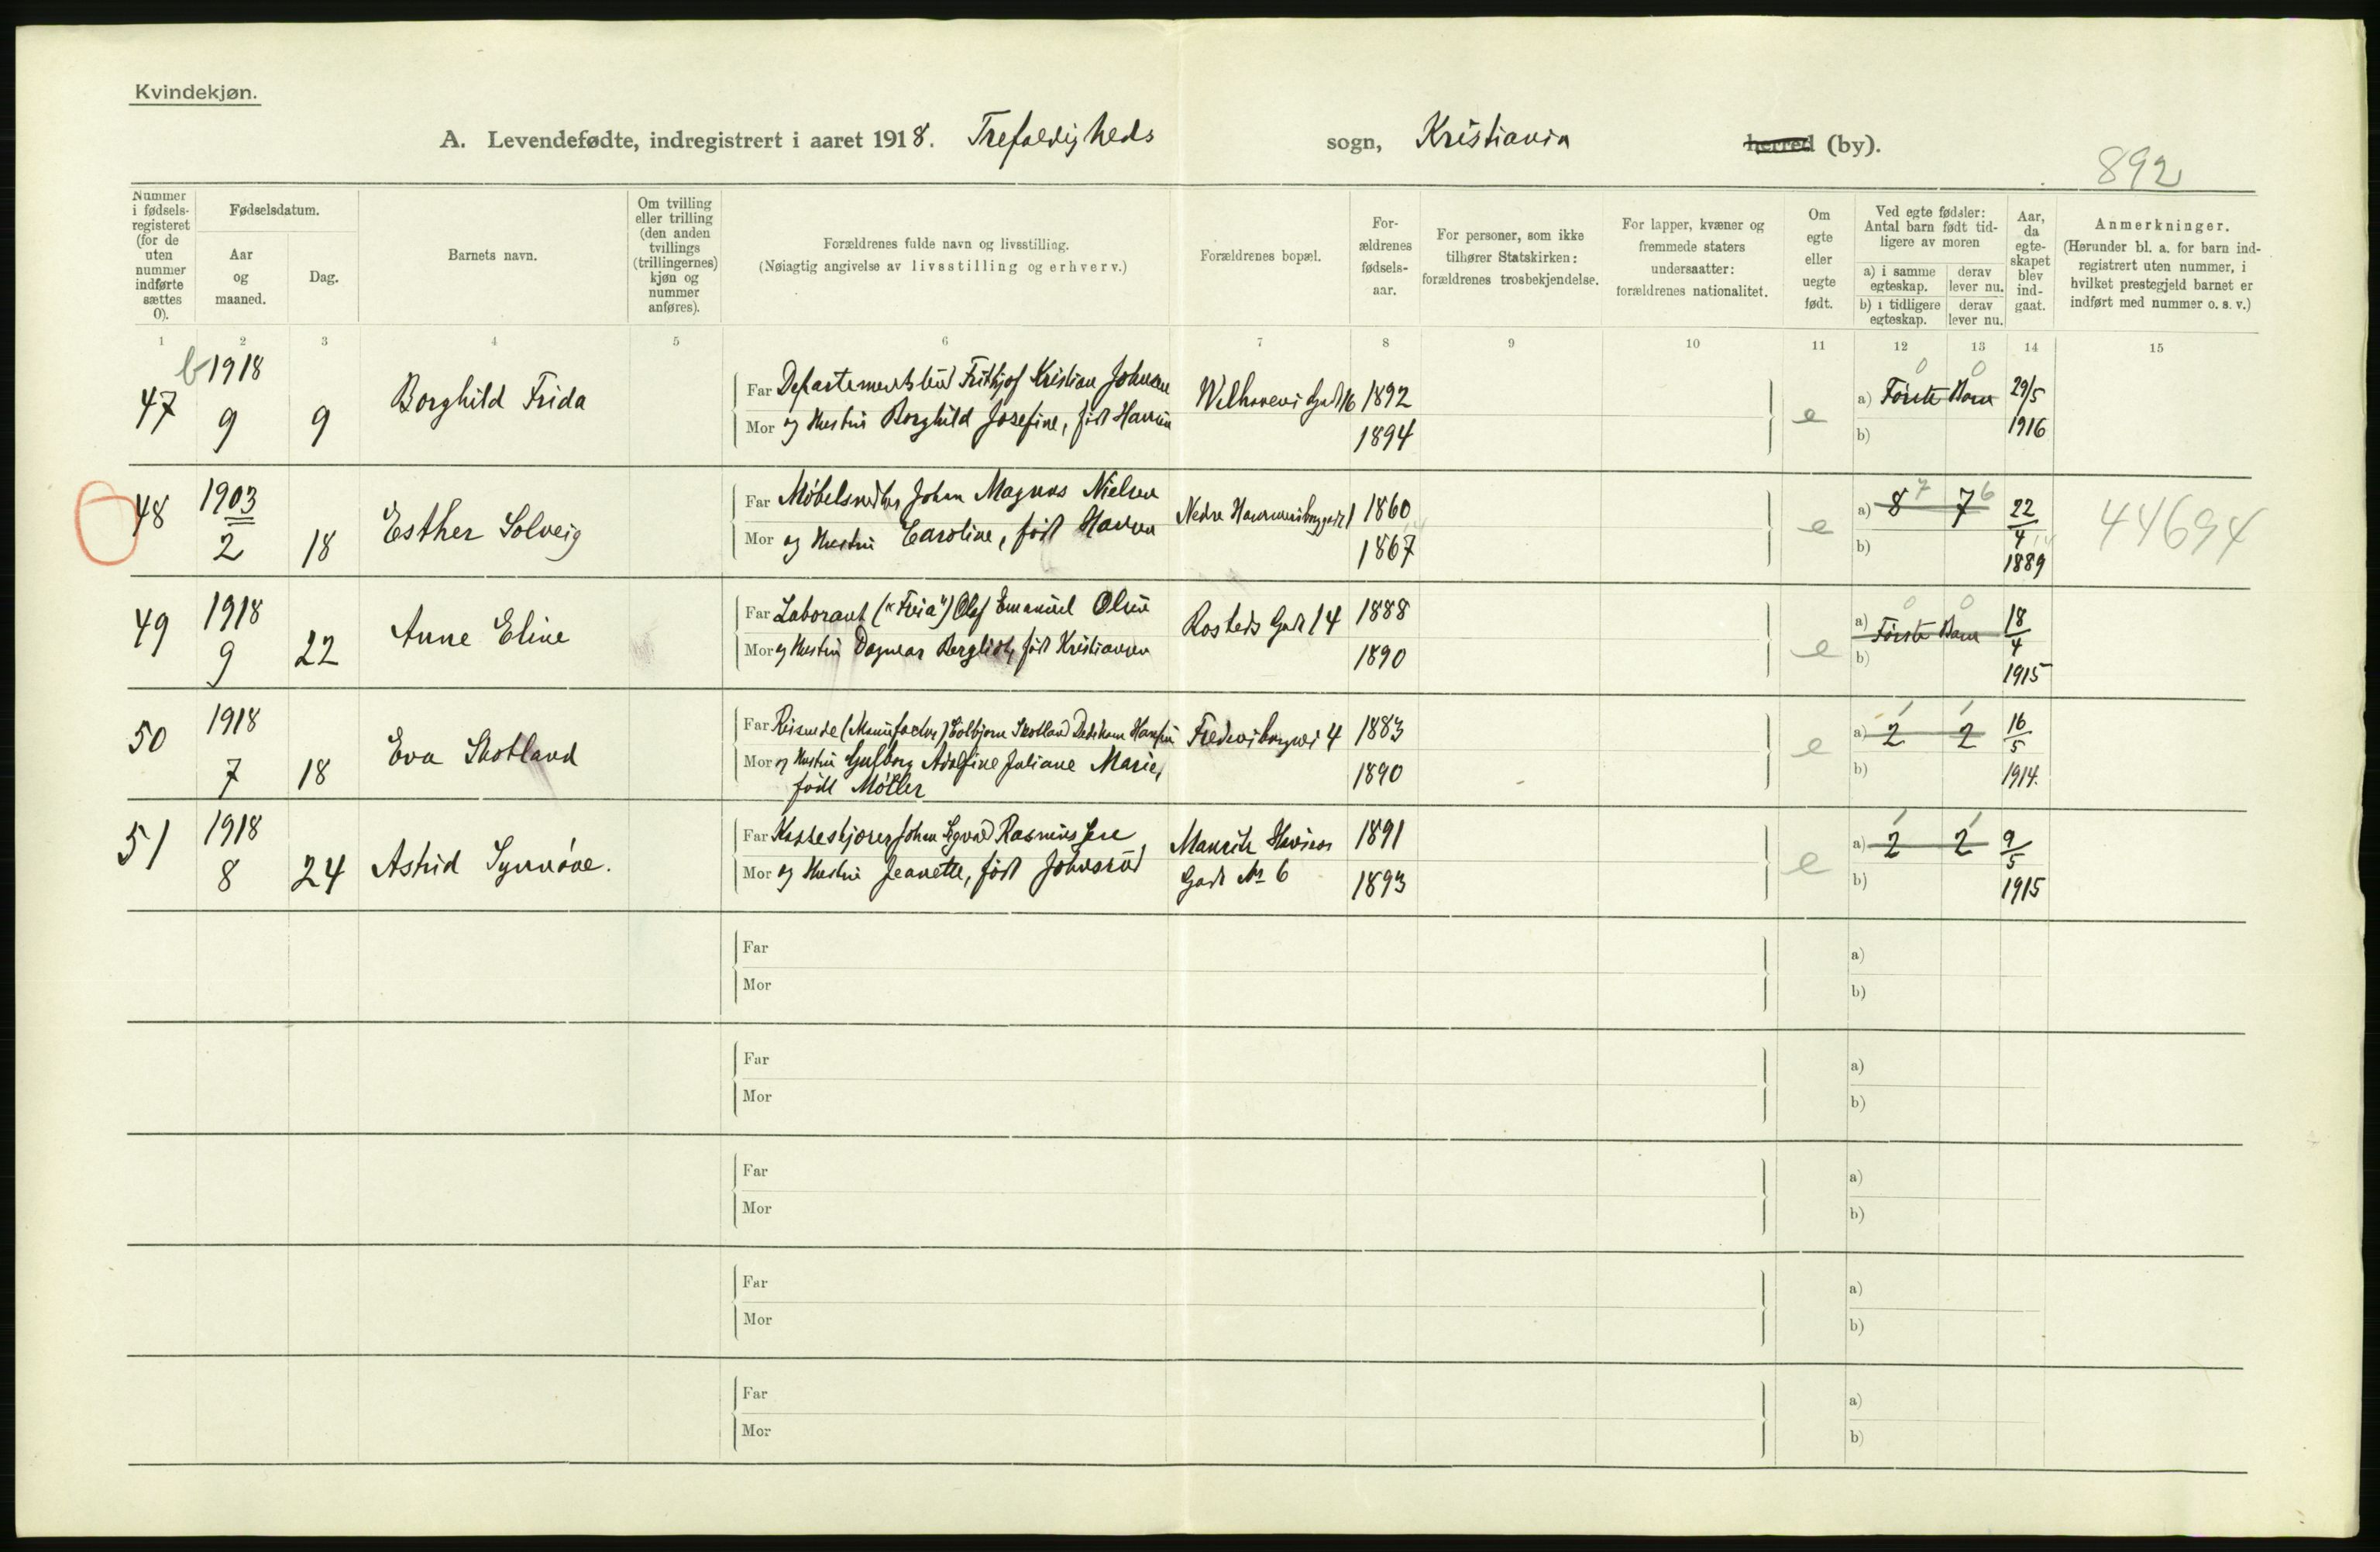 Kvindekjøn.
A. Levendefødte, indregistrert i aaret 1918. Trefoldigheds sogn, Kristiania herred (by).
892
Nummer i fødsels-registeret (for de uten nummer indførte sættes 0).
Fødselsdatum.
Aar og maaned.
Dag.
Barnets navn.
Om tvilling eller trilling (den anden tvillings (trillingernes) kjøn og nummer anføres).
Forældrenes fulde navn og livsstilling.
(Nøiagtig angivelse av livsstilling og erhverv.)
Forældrenes bopæl.
For-ældrenes fødsels-aar.
For personer, som ikke tilhører Statskirken: forældrenes trosbekjendelse.
For lapper, kvæner og fremmede staters undersaatter: forældrenes nationalitet.
Om egte eller uegte født.
Ved egte fødsler: Antal barn født tid-ligere av moren
a) i samme egteskap.
derav lever nu.
b) i tidligere egteskap.
derav lever nu.
Aar, da egte-skapet blev ind-gaat.
Anmerkninger.
(Herunder bl. a. for barn ind-registrert uten nummer, i hvilket prestegjeld barnet er indført med nummer o. s. v.)
1 2 3 4 5 6 7 8 9 10 11 12 13 14 15
47 b 1918 9 9 Borghild Frida
Far Departementsbud Frithjof Kristian Johnsen
Mor og Hustru Borghild Josefine, født Hansen
Welhavens Gade 16 1892 1894 e
a) Første Barn 0 0
b)
29/5 1916
48 1903 2 18 Esther Solveig
Far Møbelsnedker Johan Magnus Nielsen
Mor og Hustru Caroline, født Hansen
Nedre 1 1860 1867 e
a) 8 7 7 6
b)
22/4 1889
44694
49 1918 9 22 Anne Eline
Far Laborant ("Freia") Olaf Emanuel Olsen
Mor og Hustru Dagmar Bergliot, født Kristiansen
Rosteds Gade 14 1888 1890 e
a) Første Barn 0 0
b)
18/4 1915
50 1918 7 18 Eva Skotland
Far Reisende (Manufactur) Skotland
Mor og Hustru Gulborg Adolfine Juliane Marie,
født Møller
4 1883 1890 e
a) 2 2 1 1
b)
16/5 1914.
51 1918 8 24 Astrid Synnöve.
Far Kassekjører Johan Sigvald Rasmus
Mor og Hustru Jeanette, født Johnsrud
Mauritz Hansens
Gade No 6 1891 1893 e
a) 2 2 1 1
b)
9/5 1915
Far a)
Mor b)
Far a)
Mor b)
Far a)
Mor b)
Far a)
Mor b)
Far a)
Mor b)